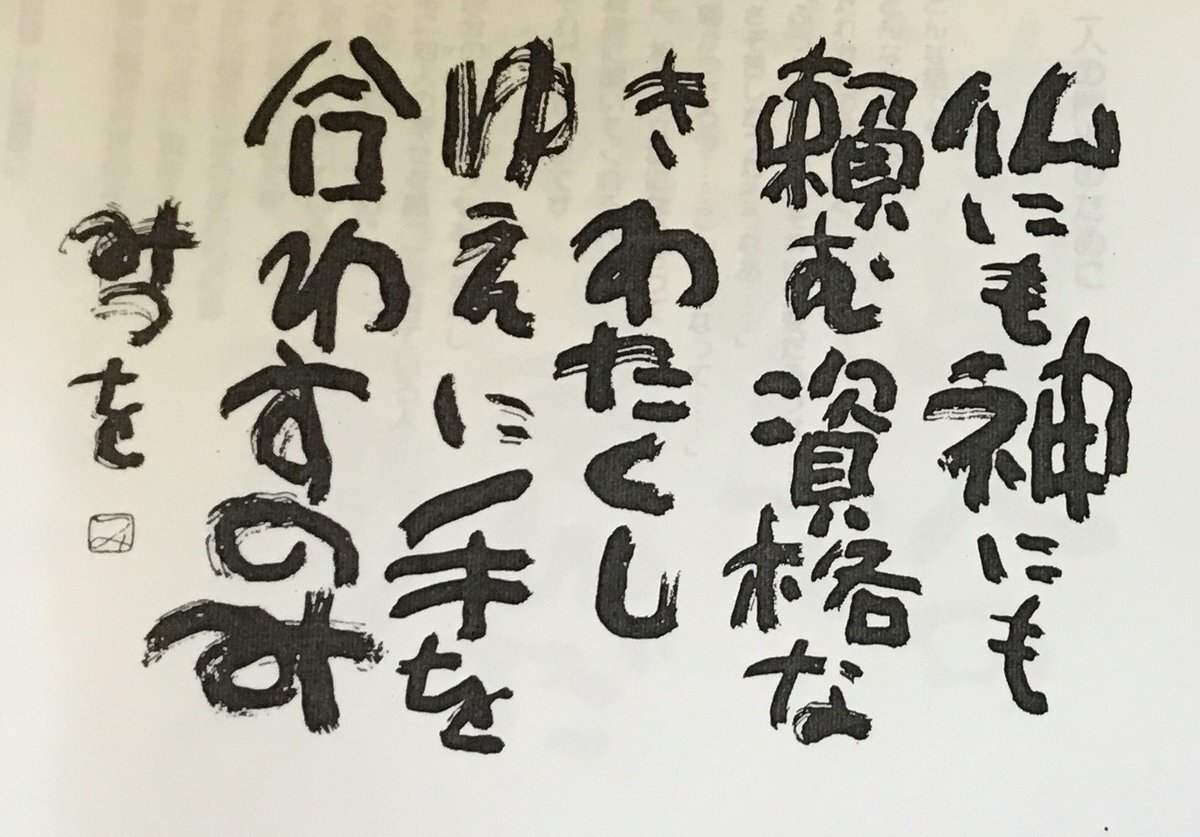 仏にも神にも
頼む資格な
き わたくし
ゆえに手を
合わすのみ
みつを